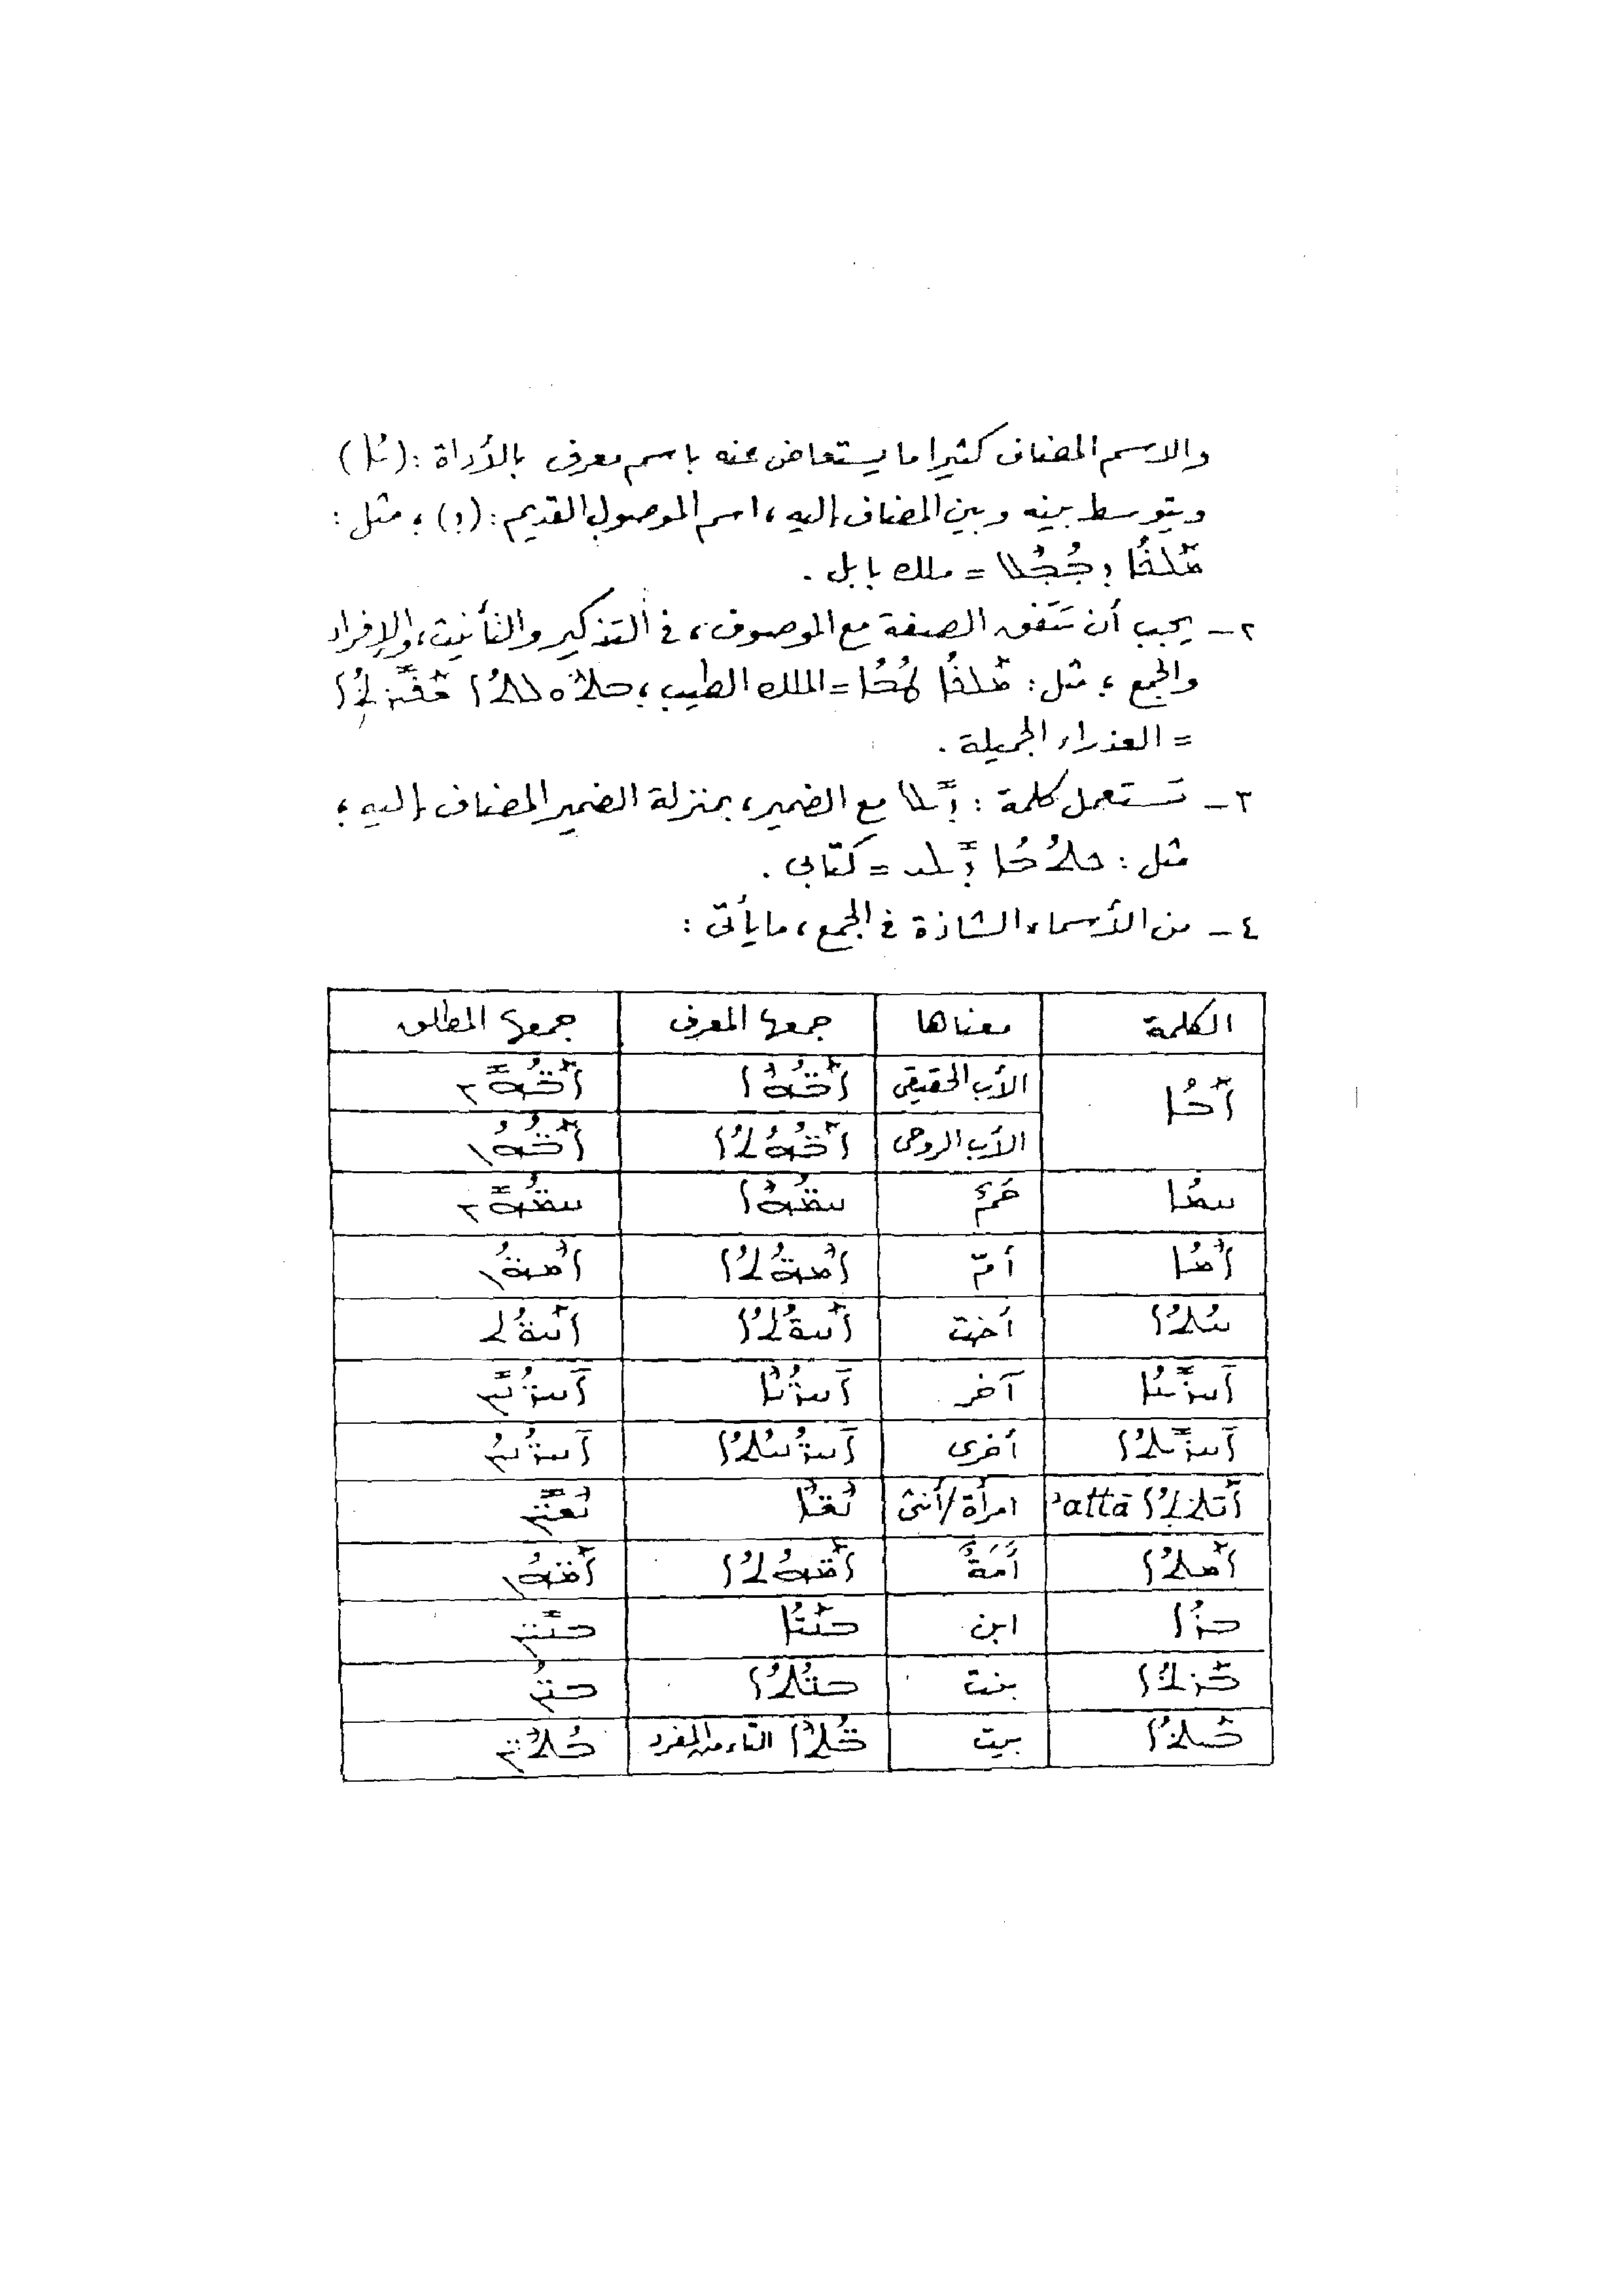 والاسم المضاف كثيرا ما يستعاض عنه باسم معرف بالأداة : (ܳܐ)
ويتوسط بينه وبين المضاف إليه ، اسم الموصول القديم : (ܕ) ؛ مثل :
ܡܰܠܟܳܐ ܕܒܳܒܶܠ = ملك بابل .
٢ – يجب أن تَتَفق الصفة مع الموصوف ، فى التذكير والتأنيث ، والإفراد
والجمع ؛ مثل : ܡܰܠܟܳܐ ܛܳܒܳܐ = الملك الطيب ؛ ܒܬܽܘܠܬܳܐ ܫܰܦܺܝܪܬܳܐ
= العذراء الجميلة .
٣ – تستعمل كلمة : ܕܺܝܠ مع الضمير ، بمنزلة الضمير المضاف إليه ؛
مثل : ܟܬܳܒܳܐ ܕܺܝܠܝ = كتابى .
٤ – من الأسماء الشاذة فى الجمع ، ما يأتى :
الكلمة معناها جمعها المعرف جمعها المطلق
ܐܰܒܳܐ الأب الحقيقى ܐܰܒ̈ܳܗܶܐ ܐܰܒ̈ܳܗܺܝܢ
الأب الروحى ܐܰܒ̈ܳܗܳܬܳܐ ܐܰܒ̈ܳܗܳܢ
ܚܡܳܐ حَمٌ ܚܡ̈ܳܗܶܐ ܚܡ̈ܳܗܺܝܢ
ܐܶܡܳܐ أمّ ܐܶܡ̈ܗܳܬܳܐ ܐܶܡ̈ܗܳܢ
ܚܳܬܳܐ أخت ܐܰܚ̈ܘܳܬܳܐ ܐܰܚ̈ܘܳܬ
ܐ̱ܚܪܺܢܳܐ آخر ܐ̱ܚܪ̈ܳܢܶܐ ܐ̱ܚܪ̈ܳܢܺܝܢ
ܐ̱ܚܪܺܬܳܐ أخرى ܐ̱ܚܪ̈ܳܢܝܳܬܳܐ ܐ̱ܚܪ̈ܳܢܝܳܢ
ܐܰܢ̱ܬܬܳܐ ʾattā امرأة/أنثى ܢܶܫ̈ܶܐ ܢܶܫ̈ܺܝܢ
ܐܰܡܬܳܐ أَمَةٌ ܐܰܡ̈ܗܳܬܳܐ ܐܰܡ̈ܗܳܢ
ܒܪܳܐ ابن ܒܢܰܝ̈ܳܐ ܒܢܺܝ̈ܢ
ܒܰܪܬܳܐ بنت ܒܢ̈ܳܬܳܐ ܒܢ̈ܳܢ
ܒܰܝܬܳܐ بيت ܒ̈ܳܬܶܐ التاء من المفرد ܒܳܬܺܝ̈ܢ